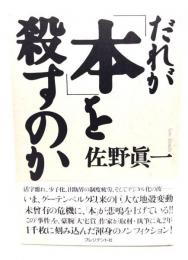 だれが
「本」を
殺すのか
佐野眞一
活字離れ、少子化、出版界の制度疲労、そしてデジタル化の波…
いま、グーテンベルク以来の巨大な地殻変動
未曾有の危機に、「本」が悲鳴を上げている!!
この「事件」を、豪腕・大宅賞作家が取材・執筆に丸2年
1千枚に刻み込んだ渾身のノンフィクション!
プレジデント社